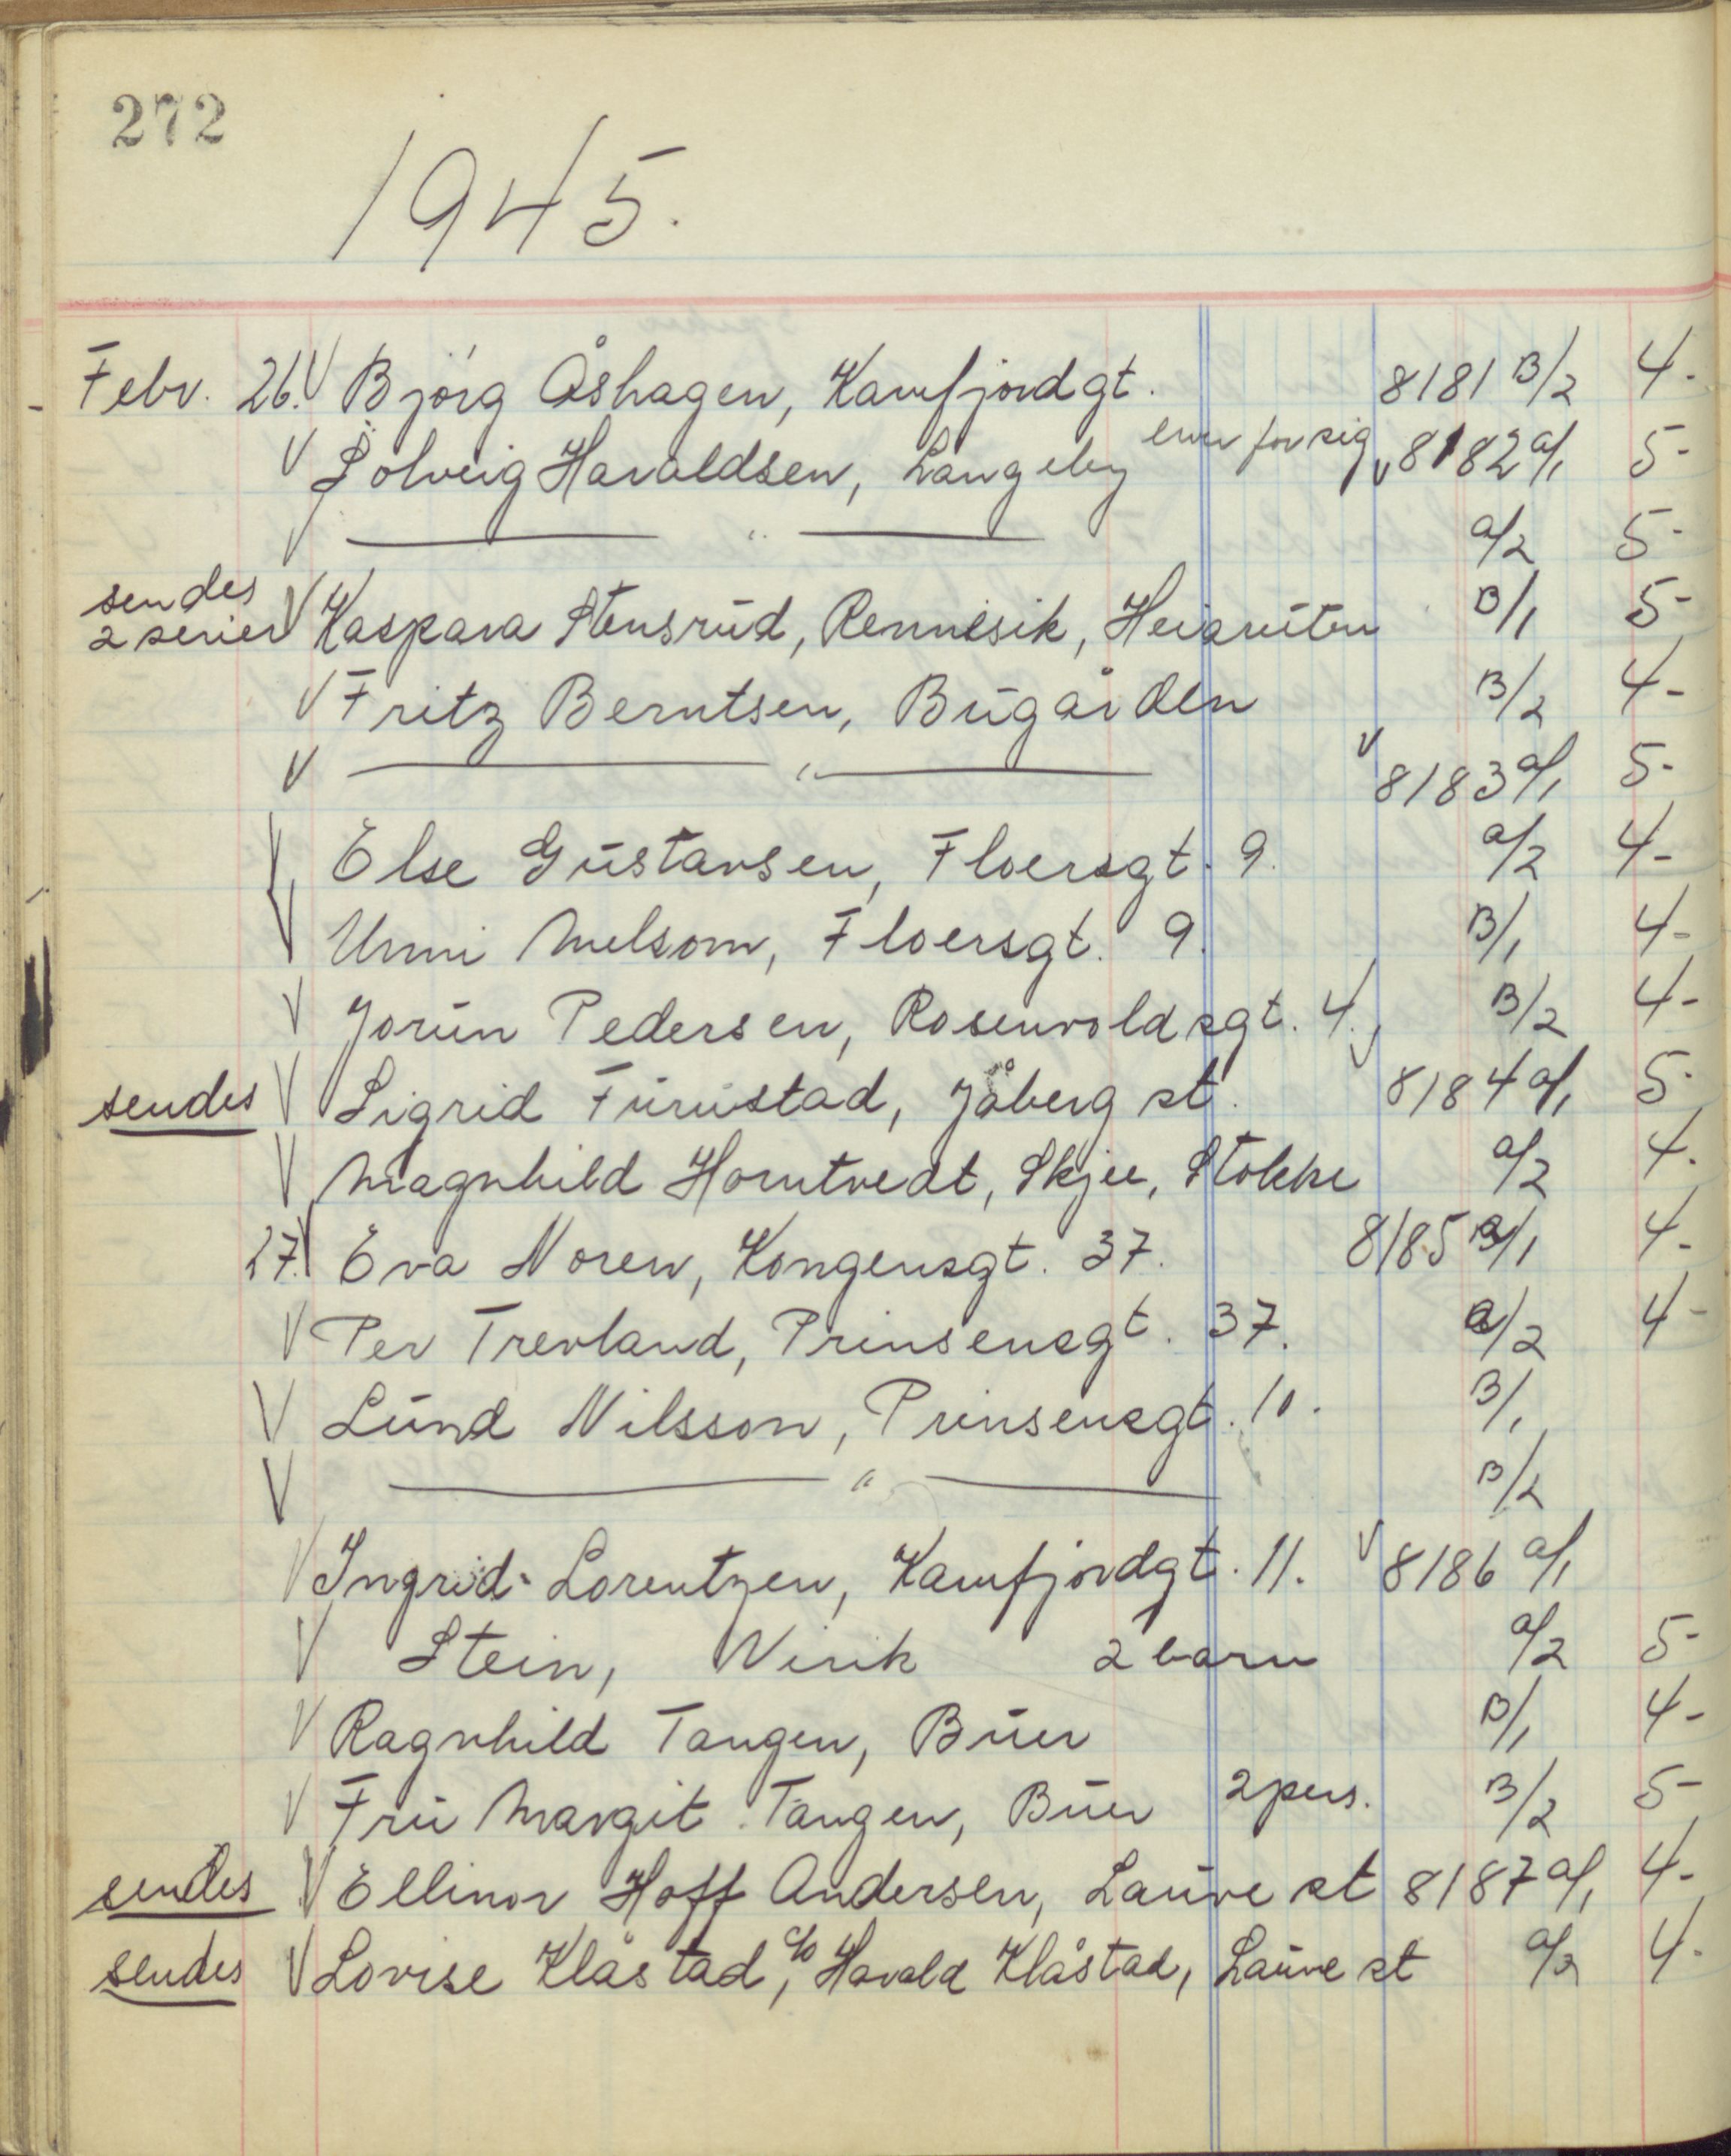 272
1945.
Febr. 26. V Bjørg Åshagen, Kamfjordgt. 8181 B/2 4-
V Solveig Haraldsen, Langeby hver for sig V 8182 a/1 5-
V —— " —— a/2 5-
sendes
2 serier V Kaspara Stensrud, Rennesik, Heiaruten B/1 5-
V Fritz Berntsen, Bugården B/2 4-
V —— " —— V 8183 a/1 5-
V Else Gustavsen, Floersgt. 9. a/2 4-
V Unni Melsom, Floersgt. 9. B/1 4-
V Jorun Pedersen, Rosenvoldsgt. 4. B/2 4-
sendes V Sigrid Furustad, Jåberg st. V 8184 a/1 5-
V Magnhild Horntvedt, Skjee, Stokke a/2 4.
27. V Eva Noren, Kongensgt. 37. 8185 B/1 4-
V Per Trevland, Prinsensgt. 37. a/2 4-
V Lund Nilsson, Prinsensgt. 10. B/1
V —— " —— B/2
V Ingrid Lorentzen, Kamfjordgt. 11. V 8186 a/1
V Stein, Nirik 2 barn a/2 5-
V Ragnhild Tangen, Buer B/1 4-
V Fru Margit Tangen, Buer 2 pers. B/2 5-
sendes V Ellinor Hoff Andersen, Lauve st 8187 a/1 4-
sendes V Lovise Klåstad, c/o Harald Klåstad, Lauve st a/2 4-